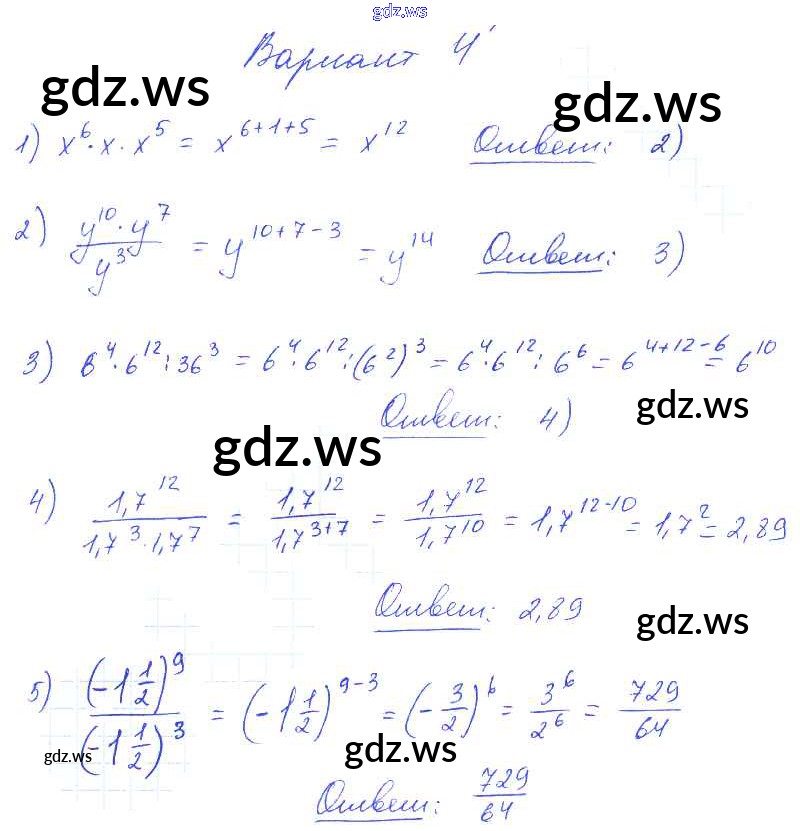 gdz.ws
Вариант 4
gdz.ws gdz.ws
1) x⁶·x·x⁵ = x⁶⁺¹⁺⁵ = x¹² Ответ: 2)
2) (y¹⁰·y⁷)/y³ = y¹⁰⁺⁷⁻³ = y¹⁴ Ответ: 3)
3) 6⁴·6¹²:36³ = 6⁴·6¹²:(6²)³ = 6⁴·6¹²:6⁶ = 6⁴⁺¹²⁻⁶ = 6¹⁰
Ответ: 4) gdz.ws
gdz.ws
4) 1,7¹²/(1,7³·1,7⁷) = 1,7¹²/1,7³⁺⁷ = 1,7¹²/1,7¹⁰ = 1,7¹²⁻¹⁰ = 1,7² = 2,89
Ответ: 2,89 gdz.ws
5) (-1 1/2)⁹/(-1 1/2)³ = (-1 1/2)⁹⁻³ = (-3/2)⁶ = 3⁶/2⁶ = 729/64
gdz.ws gdz.ws
Ответ: 729/64